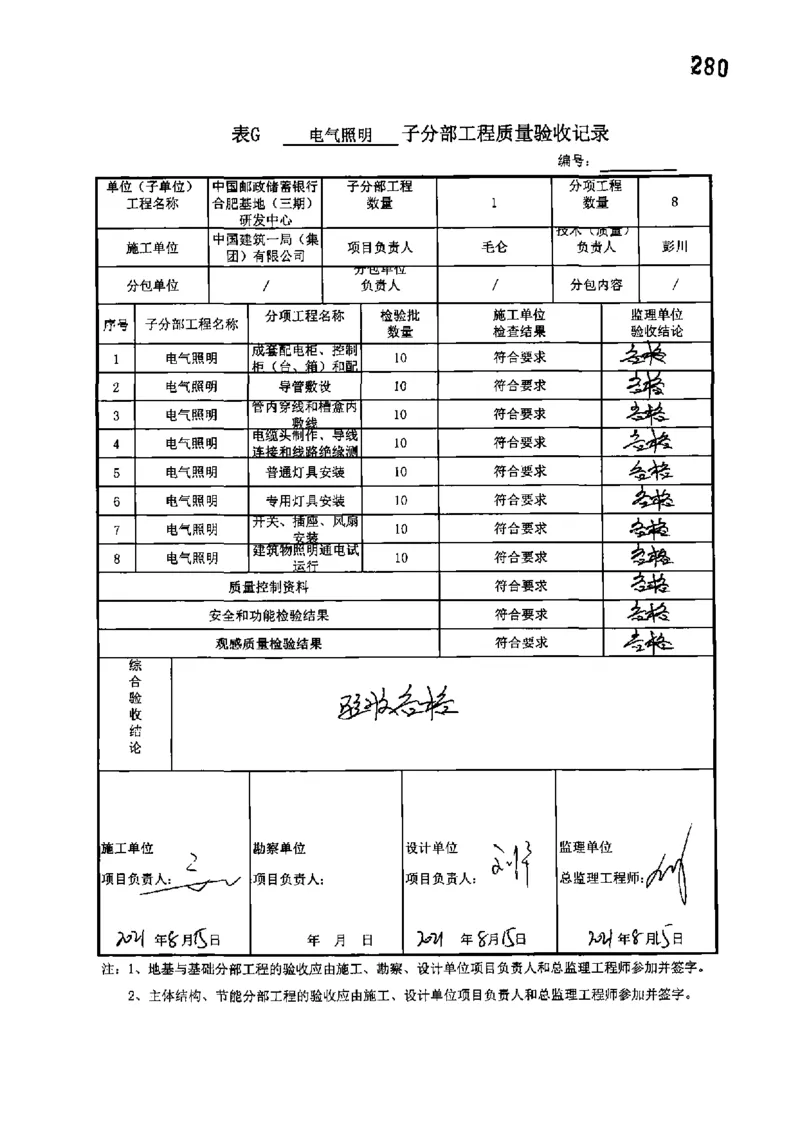 280
表G 电气照明 子分部工程质量验收记录
编号：
单位（子单位）工程名称 中国邮政储蓄银行合肥基地（三期）研发中心 子分部工程数量 1 分项工程数量 8
施工单位 中国建筑一局（集团）有限公司 项目负责人 毛仑 技术（质量）负责人 彭川
分包单位 / 分包单位负责人 / 分包内容 /
序号 子分部工程名称 分项工程名称 检验批数量 施工单位检查结果 监理单位验收结论
1 电气照明 成套配电柜、控制柜（台、箱）和配 10 符合要求 合格
2 电气照明 导管敷设 10 符合要求 合格
3 电气照明 管内穿线和槽盒内敷线 10 符合要求 合格
4 电气照明 电缆头制作、导线连接和线路绝缘测 10 符合要求 合格
5 电气照明 普通灯具安装 10 符合要求 合格
6 电气照明 专用灯具安装 10 符合要求 合格
7 电气照明 开关、插座、风扇安装 10 符合要求 合格
8 电气照明 建筑物照明通电试运行 10 符合要求 合格
质量控制资料 符合要求 合格
安全和功能检验结果 符合要求 合格
观感质量检验结果 符合要求 合格
综合验收结论 验收合格
施工单位 勘察单位 设计单位 监理单位
项目负责人： 项目负责人： 项目负责人： 总监理工程师：
2021年8月15日 年 月 日 2021年8月15日 2021年8月15日
注：1、地基与基础分部工程的验收应由施工、勘察、设计单位项目负责人和总监理工程师参加并签字。
2、主体结构、节能分部工程的验收应由施工、设计单位项目负责人和总监理工程师参加并签字。